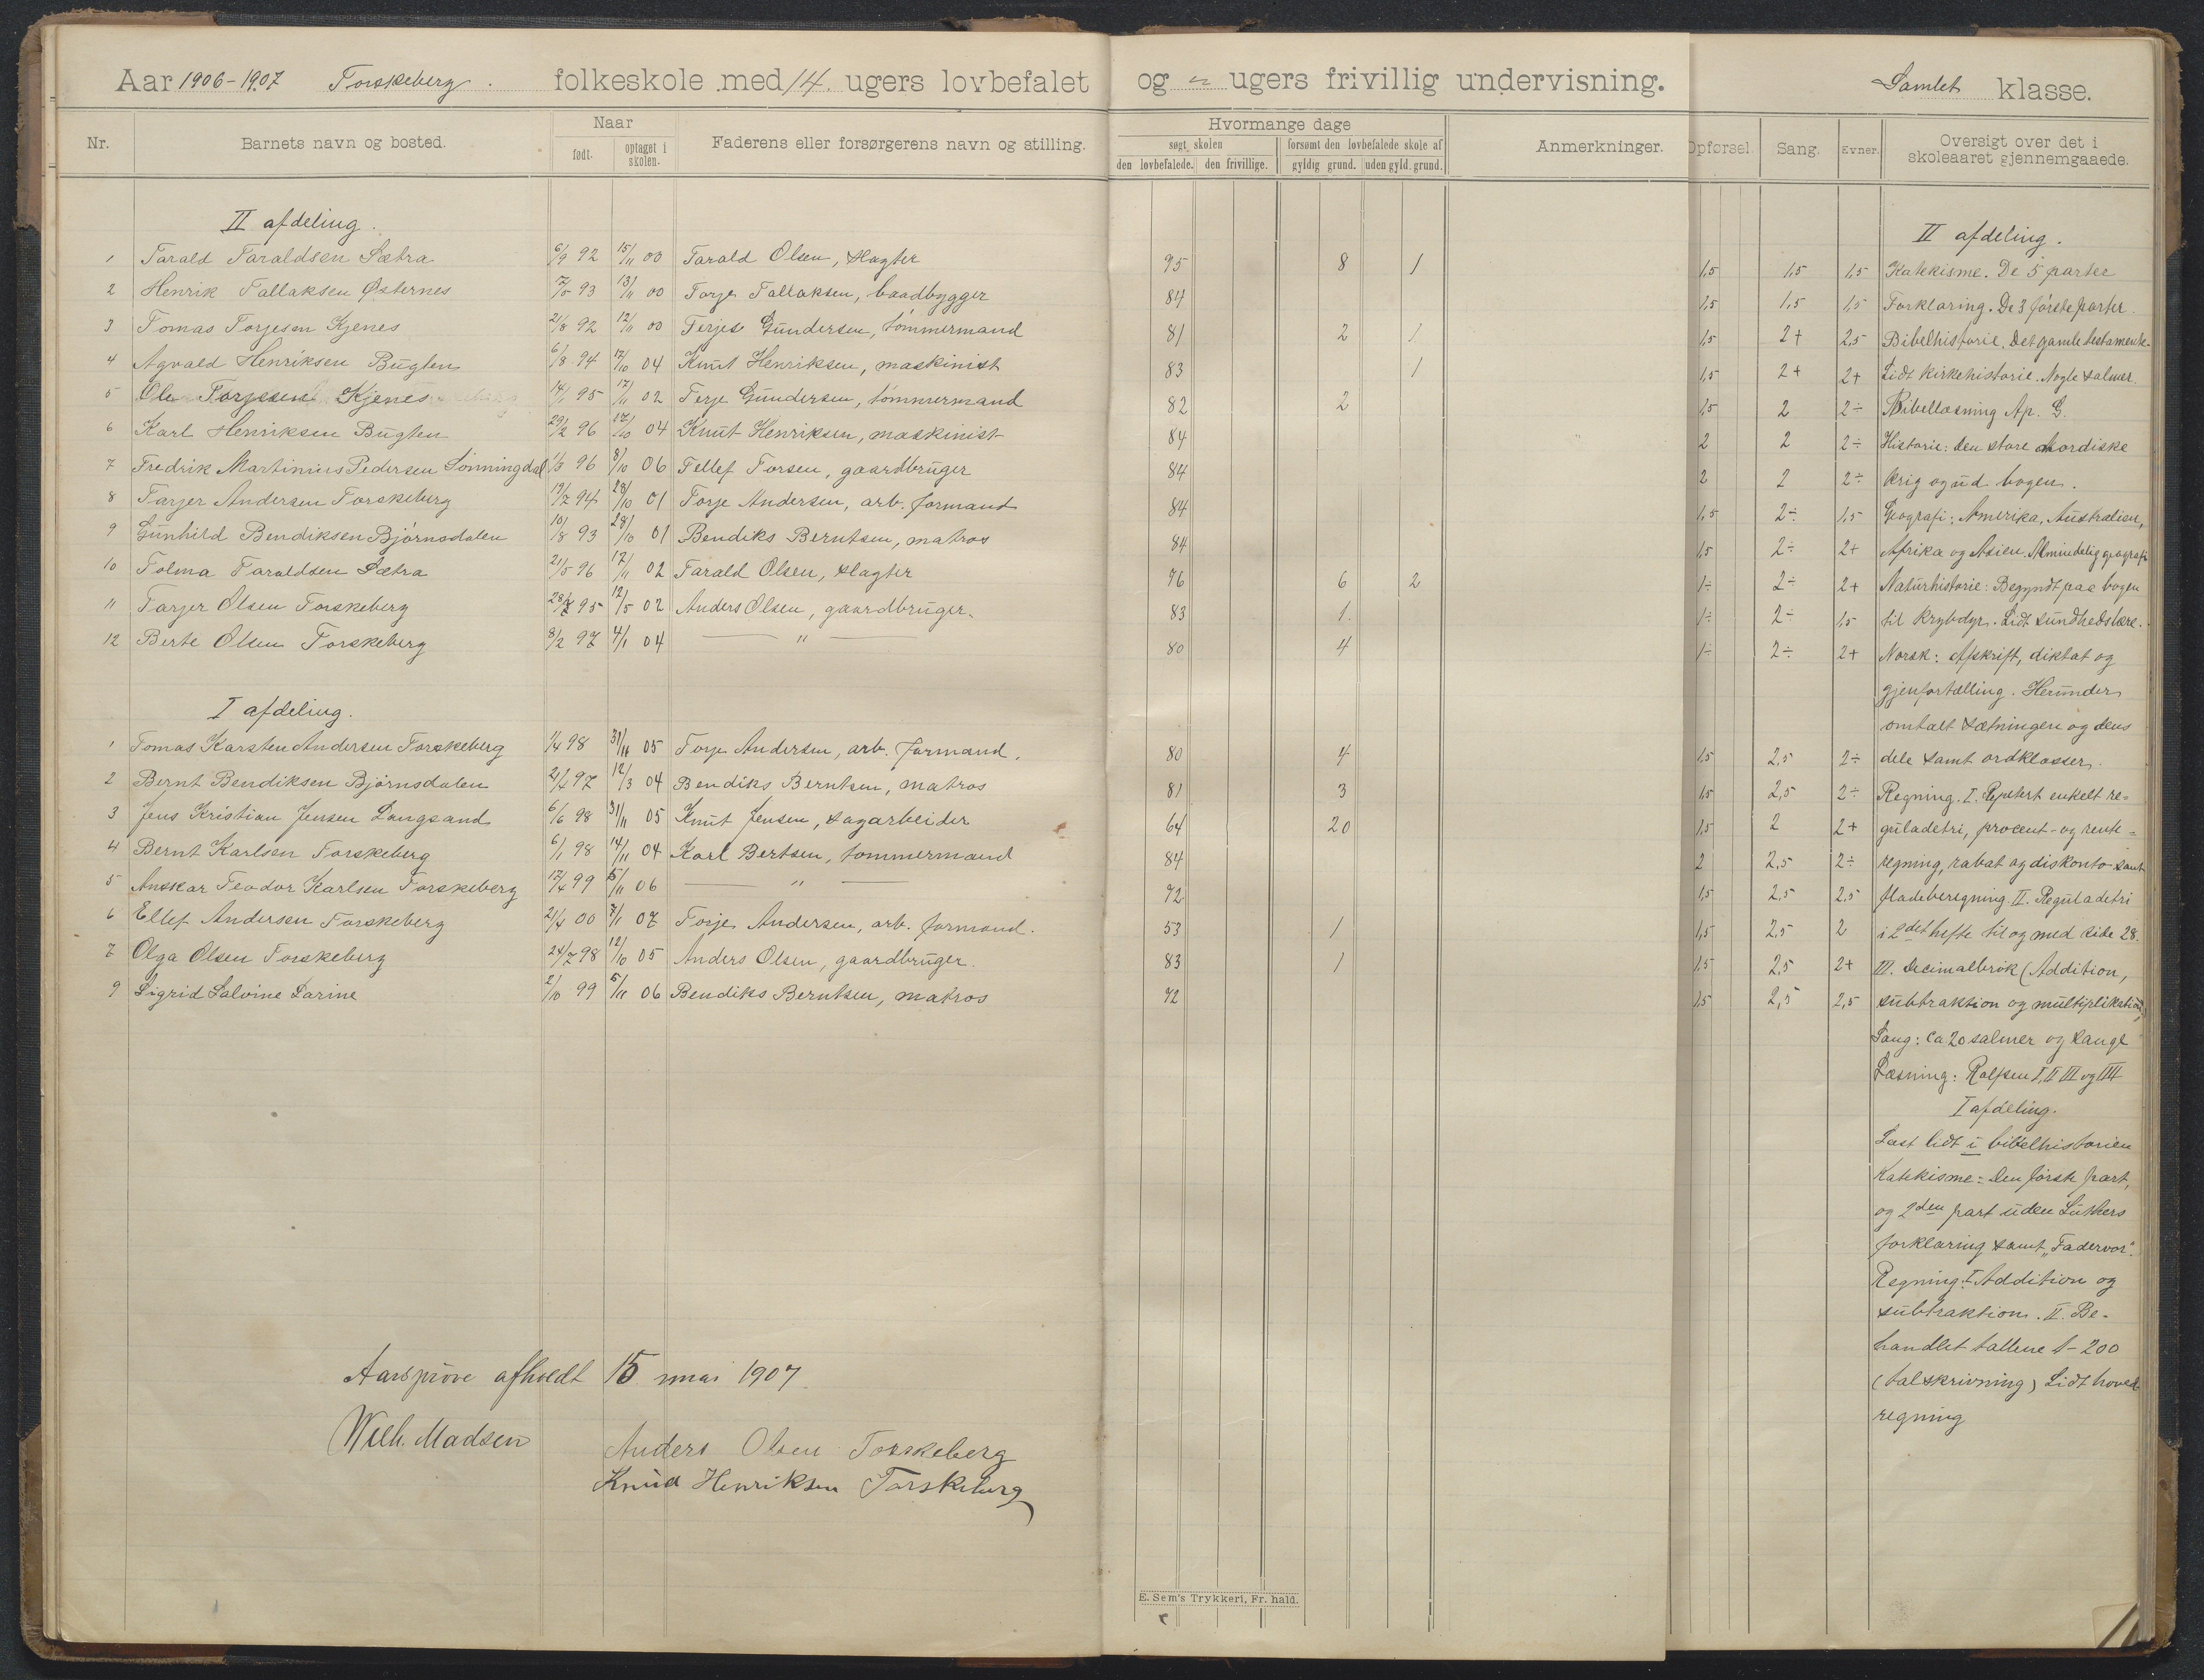 Aar 1906-1907 Torskeberg. folkeskole med 14 ugers lovbefalet og " ugers frivillig undervisning. Samlet klasse.
Nr. Barnets navn og bosted. Naar Faderens eller forsørgerens navn og stilling. Hvormange dage Anmerkninger. Opførsel. Sang. Evner. Oversigt over det i
født. optaget i skolen. søgt skolen forsømt den lovbefalede skole af skoleaaret gjennemgaaede.
den lovbefalede. den frivillige. gyldig grund. uden gyld. grund.
II afdeling.
1 Tarald Taraldsen Sætra 6/9 92 15/11 00 Tarald Olsen, slagter 95 8 1 1,5 1,5 1,5
2 Henrik Tallaksen Østernes 7/5 93 13/11 00 Torje Tallaksen, baadbygger 84 1,5 1,5 1,5
3 Tomas Torjesen Kjenes 21/8 92 12/11 00 Terjes Gundersen, tømmermand 81 2 1 1,5 2+ 2,5
4 Agvald Henriksen Bugten 6/8 94 17/10 04 Knut Henriksen, maskinist 83 1 1,5 2+ 2+
5 Ole Torjesen Kjenes 14/1 95 17/11 02 Terje Gundersen, tømmermand 82 2 1,5 2 2÷
6 Karl Henriksen Bugten 29/2 96 17/10 04 Knut Henriksen, maskinist 84 2 2 2÷
7 Fredrik Martinius Pedersen Lønningdal 1/3 96 8/10 06 Tellef Torsen, gaardbruger 84 2 2 2÷
8 Tarjer Andersen Torskeberg 19/7 94 28/10 01 Torje Andersen, arb. formand 84 1,5 2÷ 1,5
9 Gunhild Bendiksen Bjørnsdalen 10/8 93 28/10 01 Bendiks Berntsen, matros 84 1,5 2÷ 2+
10 Tolma Taraldsen Sætra 21/5 96 17/11 02 Tarald Olsen, slagter 76 6 2 1÷ 2÷ 2+
11 Tarjer Olsen Torskeberg 95 12/5 02 Anders Olsen, gaardbruger. 83 1. 1÷ 2÷ 1,5
12 Berte Olsen Torskeberg 8/2 97 4/1 04 — " — 80 4 1÷ 2÷ 2+
I afdeling.
1 Tomas Karsten Andersen Torskeberg 1/4 98 31/11 05 Torje Andersen, arb. formand. 80 4 1,5 2,5 2÷
2 Bernt Bendiksen Bjørnsdalen 21/4 97 12/3 04 Bendiks Berntsen, matros 81 3 1,5 2,5 2÷
3 Jens Kristian Jensen Langsand 6/6 98 31/11 05 Knut Jensen, sagarbeider 64 20 1,5 2 2+
4 Bernt Karlsen Torskeberg 6/1 98 14/11 04 Karl Bertsen, tømmermand 84 2 2,5 2÷
5 Anskar Teodor Karlsen Torskeberg 17/4 99 5/11 06 — " — 72 1,5 2,5 2,5
6 Ellef Andersen Torskeberg 21/4 00 7/1 07 Torje Andersen, arb. formand. 53 1 1,5 2,5 2
7 Olga Olsen Torskeberg 24/7 98 12/10 05 Anders Olsen, gaardbruger. 83 1 1,5 2,5 2+
9 Sigrid Salvine Larine 2/10 99 5/11 06 Bendiks Berntsen, matros 72 1,5 2,5 2,5
II afdeling.
Katekisme. De 5 parter
Forklaring. De 3 første parter.
Bibelhistorie. Det gamle testamente.
Lidt kirkehistorie. Nogle salmer.
Bibellæsning Ap. G.
Historie: Den store nordiske
krig og ud bogen.
Geografi: Amerika, Australien,
Afrika og Asien. Almindelig geografi
Naturhistorie: Begyndt paa bogen
til krybdyr. Lidt sundhedslære.
Norsk: Afskrift, diktat og
gjenfortælling. Herunder
omtalt sætningen og dens
dele samt ordklasser.
Regning. I. Repetert enkelt re=
guladetri, procent- og rente=
regning, rabat og diskonto samt
fladeberegning. II. Reguladetri
i 2det hefte til og med side 28.
III. Decimalbrøk (Addition,
subtraktion og multiplikation)
Sang: Ca 20 salmer og sange
Læsning: Rolfsen I, II III og IIII
I afdeling.
Læst lidt i bibelhistorien
Katekisme: Den første part,
og 2den part uden Luthers
forklaring samt „Fadervor".
Regning: I Addition og
subtraktion. II. Be-
handlet tallene 1-200
(talskrivning) Lidt hoved-
regning
Aarsprøve afholdt 15 mai 1907
Wilh. Madsen
Anders Olsen Torskeberg
Knud Henriksen Torskeberg
E. Sem's Trykkeri, Fr. hald.